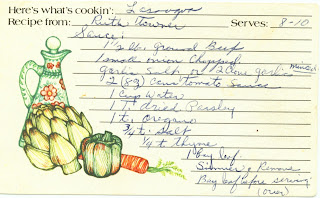 Here's what's cookin': Lasagna
Recipe from: Ruth Towner Serves: 8-10
Sauce:
1 1/2 lb. Ground Beef
1 small onion Chopped
garlic salt or 2 clove garlic minced
2 (8 oz) Cans Tomato Sauce
1 Cup Water
1 T. dried Parsley
1 t. oregano
3/4 t. Salt
1/4 t thyme
1 Bay leaf.
Simmer & Remove
Bay leaf before serving
(over)